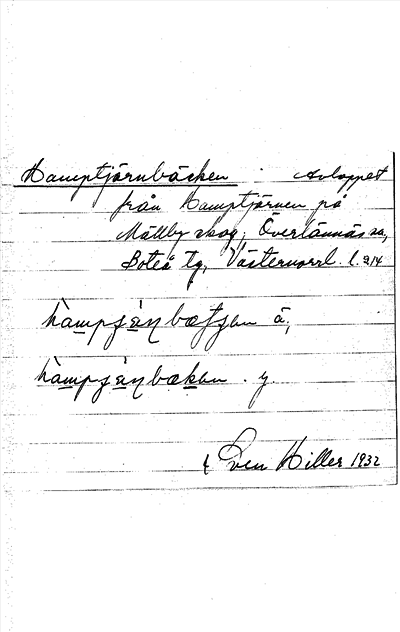 Hamptjärnbäcken . Avloppet
från Hamptjärnen på
Mällby skog, Överlännäs sn,
Boteå tg, Västernorrl. l.
hampjänbætjan ä,
hampjänbækan . y.
Sven Hiller 1932